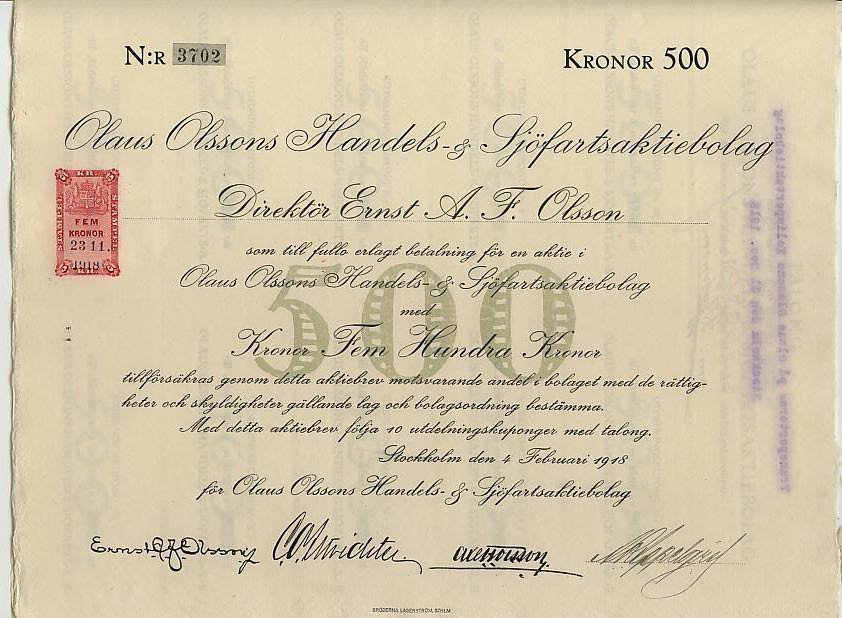 N:R 3702
KRONOR 500
Olaus Olssons Handels- & Sjöfartsaktiebolag
KR.
5 5
STÄMPEL STÄMPEL
FEM
KRONOR
23 11.
1918
5 KR. 5
Direktör Ernst A. F. Olsson
som till fullo erlagt betalning för en aktie i
Olaus Olssons Handels- & Sjöfartsaktiebolag
500
med
Kronor Fem Hundra Kronor
tillförsäkras genom detta aktiebrev motsvarande andel i bolaget med de rättig-
heter och skyldigheter gällande lag och bolagsordning bestämma.
Med detta aktiebrev följa 10 utdelningskuponger med talong.
Stockholm den 4 Februari 1918
för Olaus Olssons Handels- & Sjöfartsaktiebolag
Ernst A F Olsson
BRÖDERNA LAGERSTRÖM, STHLM
Transporteras på Olaus Olssons Kolimportaktiebolag
Stockholm den 23 nov. 1918